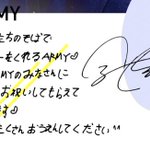 MY
たちのそばで
ーをくれるARMY
RMYのみなさんに
お祝いしてもらえて
す
たくさんおうえんしてください^^